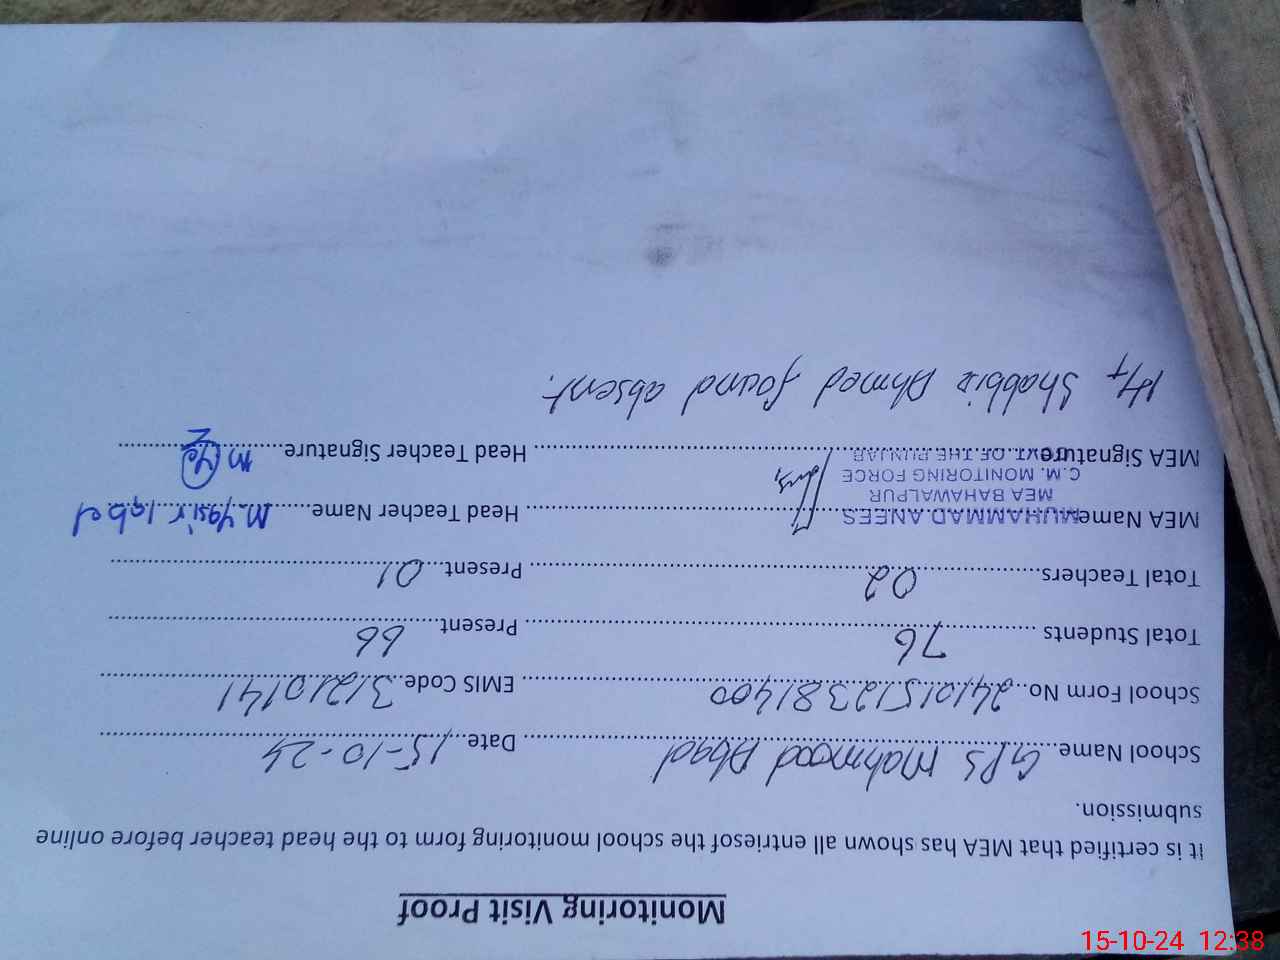 Monitoring Visit Proof
it is certified that MEA has shown all entriesof the school monitoring form to the head teacher before online
submission.
School Name GPS Mahmood Abad Date 15-10-24
School Form No 24101512381400 EMIS Code 31210141
Total Students 76 Present 66
Total Teachers 02 Present 01
MEA Name MUHAMMAD ANEES Head Teacher Name M. Yasir Iqbal
MEA BAHAWALPUR
C.M. MONITORING FORCE
GOVT. OF THE PUNJAB
MEA Signature Head Teacher Signature
HT Shabbir Ahmed found absent.
15-10-24 12:38